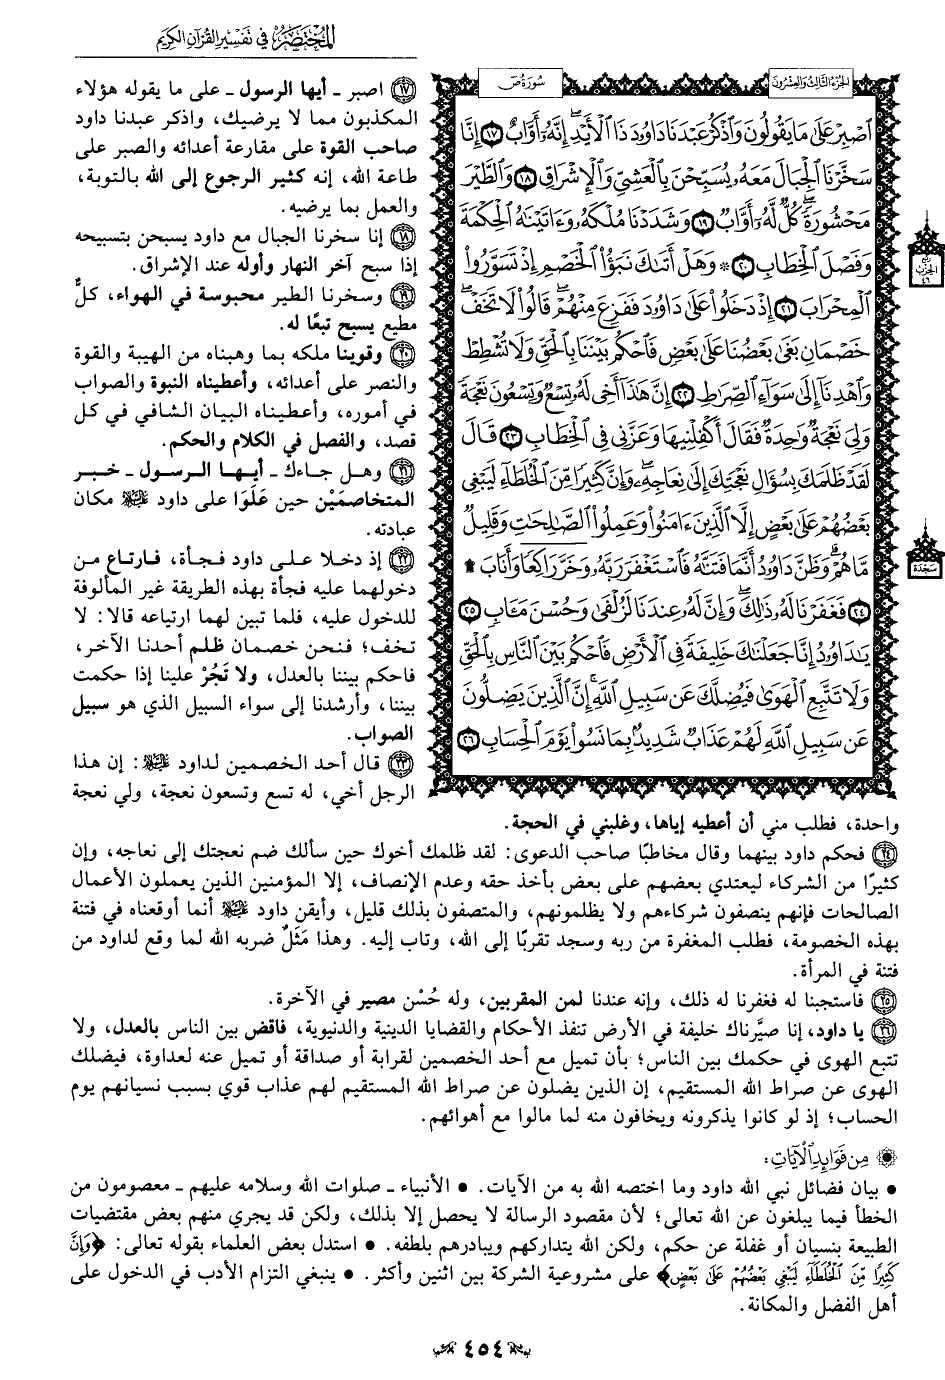 المختصر في تفسير القرآن الكريم
الجزء الثالث والعشرون
سورة ص
ٱصۡبِرۡ عَلَىٰ مَا يَقُولُونَ وَٱذۡكُرۡ عَبۡدَنَا دَاوُۥدَ ذَا ٱلۡأَيۡدِۖ إِنَّهُۥٓ أَوَّابٌ ١٧ إِنَّا
سَخَّرۡنَا ٱلۡجِبَالَ مَعَهُۥ يُسَبِّحۡنَ بِٱلۡعَشِيِّ وَٱلۡإِشۡرَاقِ ١٨ وَٱلطَّيۡرَ
مَحۡشُورَةٗۖ كُلّٞ لَّهُۥٓ أَوَّابٞ ١٩ وَشَدَدۡنَا مُلۡكَهُۥ وَءَاتَيۡنَٰهُ ٱلۡحِكۡمَةَ
وَفَصۡلَ ٱلۡخِطَابِ ٢٠ ۞ وَهَلۡ أَتَىٰكَ نَبَؤُاْ ٱلۡخَصۡمِ إِذۡ تَسَوَّرُواْ
ٱلۡمِحۡرَابَ ٢١ إِذۡ دَخَلُواْ عَلَىٰ دَاوُۥدَ فَفَزِعَ مِنۡهُمۡۖ قَالُواْ لَا تَخَفۡۖ
خَصۡمَانِ بَغَىٰ بَعۡضُنَا عَلَىٰ بَعۡضٖ فَٱحۡكُم بَيۡنَنَا بِٱلۡحَقِّ وَلَا تُشۡطِطۡ
وَٱهۡدِنَآ إِلَىٰ سَوَآءِ ٱلصِّرَٰطِ ٢٢ إِنَّ هَٰذَآ أَخِي لَهُۥ تِسۡعٞ وَتِسۡعُونَ نَعۡجَةٗ
وَلِيَ نَعۡجَةٞ وَٰحِدَةٞ فَقَالَ أَكۡفِلۡنِيهَا وَعَزَّنِي فِي ٱلۡخِطَابِ ٢٣ قَالَ
لَقَدۡ ظَلَمَكَ بِسُؤَالِ نَعۡجَتِكَ إِلَىٰ نِعَاجِهِۦۖ وَإِنَّ كَثِيرٗا مِّنَ ٱلۡخُلَطَآءِ لَيَبۡغِي
بَعۡضُهُمۡ عَلَىٰ بَعۡضٍ إِلَّا ٱلَّذِينَ ءَامَنُواْ وَعَمِلُواْ ٱلصَّٰلِحَٰتِ وَقَلِيلٞ
مَّا هُمۡۗ وَظَنَّ دَاوُۥدُ أَنَّمَا فَتَنَّٰهُ فَٱسۡتَغۡفَرَ رَبَّهُۥ وَخَرَّۤ رَاكِعٗاۤ وَأَنَابَ ۩
٢٤ فَغَفَرۡنَا لَهُۥ ذَٰلِكَۖ وَإِنَّ لَهُۥ عِندَنَا لَزُلۡفَىٰ وَحُسۡنَ مَـَٔابٖ ٢٥
يَٰدَاوُۥدُ إِنَّا جَعَلۡنَٰكَ خَلِيفَةٗ فِي ٱلۡأَرۡضِ فَٱحۡكُم بَيۡنَ ٱلنَّاسِ بِٱلۡحَقِّ
وَلَا تَتَّبِعِ ٱلۡهَوَىٰ فَيُضِلَّكَ عَن سَبِيلِ ٱللَّهِۚ إِنَّ ٱلَّذِينَ يَضِلُّونَ
عَن سَبِيلِ ٱللَّهِ لَهُمۡ عَذَابٞ شَدِيدُۢ بِمَا نَسُواْ يَوۡمَ ٱلۡحِسَابِ ٢٦
ربع
الحزب
٤٦
سجدة
١٧ اصبر - أيها الرسول - على ما يقوله هؤلاء
المكذبون مما لا يرضيك، واذكر عبدنا داود
صاحب القوة على مقارعة أعدائه والصبر على
طاعة الله، إنه كثير الرجوع إلى الله بالتوبة،
والعمل بما يرضيه.
١٨ إنا سخرنا الجبال مع داود يسبحن بتسبيحه
إذا سبح آخر النهار وأوله عند الإشراق.
١٩ وسخرنا الطير محبوسة في الهواء، كلٌّ
مطيع يسبح تبعًا له.
٢٠ وقوينا ملكه بما وهبناه من الهيبة والقوة
والنصر على أعدائه، وأعطيناه النبوة والصواب
في أموره، وأعطيناه البيان الشافي في كل
قصد، والفصل في الكلام والحكم.
٢١ وهل جاءك - أيها الرسول - خبر
المتخاصمَيْن حين عَلَوَا على داود ﵇ مكان
عبادته.
٢٢ إذ دخلا على داود فجأة، فارتاع من
دخولهما عليه فجأة بهذه الطريقة غير المألوفة
للدخول عليه، فلما تبين لهما ارتياعه قالا: لا
تخف؛ فنحن خصمان ظلم أحدنا الآخر،
فاحكم بيننا بالعدل، ولا تَجُرْ علينا إذا حكمت
بيننا، وأرشدنا إلى سواء السبيل الذي هو سبيل
الصواب.
٢٣ قال أحد الخصمين لداود ﵇: إن هذا
الرجل أخي، له تسع وتسعون نعجة، ولي نعجة
واحدة، فطلب مني أن أعطيه إياها، وغلبني في الحجة.
٢٤ فحكم داود بينهما وقال مخاطبًا صاحب الدعوى: لقد ظلمك أخوك حين سألك ضم نعجتك إلى نعاجه، وإن
كثيرًا من الشركاء ليعتدي بعضهم على بعض بأخذ حقه وعدم الإنصاف، إلا المؤمنين الذين يعملون الأعمال
الصالحات فإنهم ينصفون شركاءهم ولا يظلمونهم، والمتصفون بذلك قليل، وأيقن داود ﵇ أنما أوقعناه في فتنة
بهذه الخصومة، فطلب المغفرة من ربه وسجد تقربًا إلى الله، وتاب إليه. وهذا مَثَلٌ ضربه الله لما وقع لداود من
فتنة في المرأة.
٢٥ فاستجبنا له فغفرنا له ذلك، وإنه عندنا لمن المقربين، وله حُسْن مصير في الآخرة.
٢٦ يا داود، إنا صيَّرناك خليفة في الأرض تنفذ الأحكام والقضايا الدينية والدنيوية، فاقض بين الناس بالعدل، ولا
تتبع الهوى في حكمك بين الناس؛ بأن تميل مع أحد الخصمين لقرابة أو صداقة أو تميل عنه لعداوة، فيضلك
الهوى عن صراط الله المستقيم، إن الذين يضلون عن صراط الله المستقيم لهم عذاب قوي بسبب نسيانهم يوم
الحساب؛ إذ لو كانوا يذكرونه ويخافون منه لما مالوا مع أهوائهم.
من فوائد الآيات:
• بيان فضائل نبي الله داود وما اختصه الله به من الآيات. • الأنبياء - صلوات الله وسلامه عليهم - معصومون من
الخطأ فيما يبلغون عن الله تعالى؛ لأن مقصود الرسالة لا يحصل إلا بذلك، ولكن قد يجري منهم بعض مقتضيات
الطبيعة بنسيان أو غفلة عن حكم، ولكن الله يتداركهم ويبادرهم بلطفه. • استدل بعض العلماء بقوله تعالى: ﴿وَإِنَّ
كَثِيرٗا مِّنَ ٱلۡخُلَطَآءِ لَيَبۡغِي بَعۡضُهُمۡ عَلَىٰ بَعۡضٍ﴾ على مشروعية الشركة بين اثنين وأكثر. • ينبغي التزام الأدب في الدخول على
أهل الفضل والمكانة.
٤٥٤